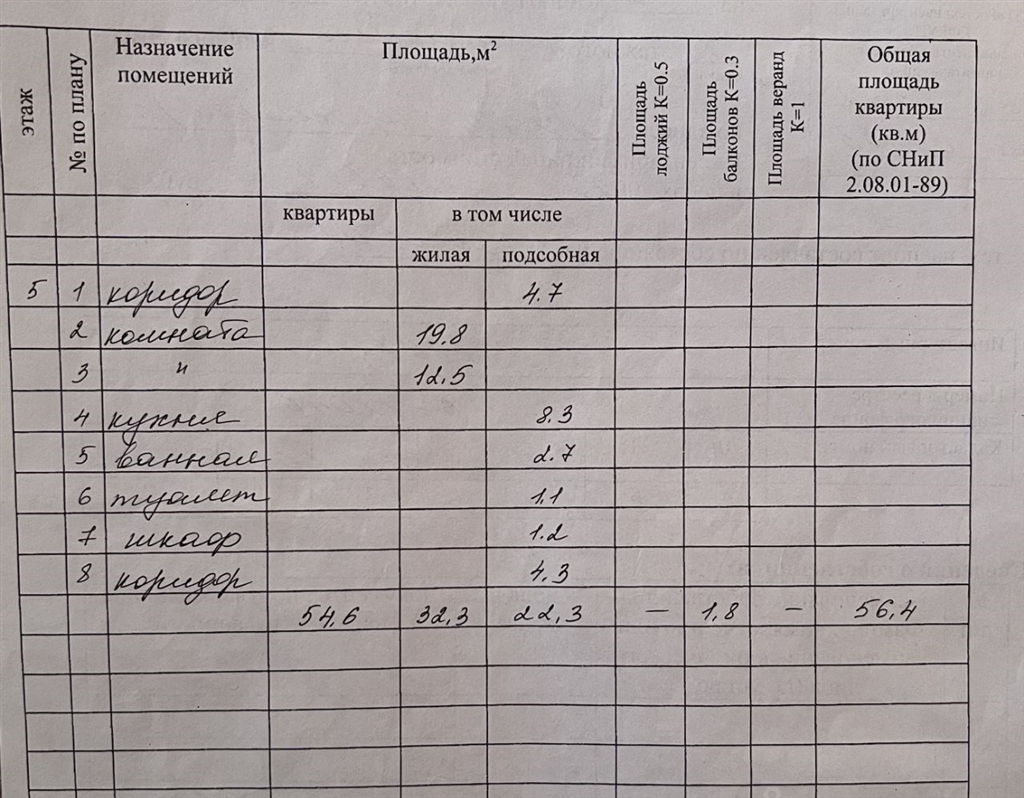 этаж
№ по плану
Назначение
помещений
Площадь,м²
Площадь
лоджий К=0.5
Площадь
балконов К=0.3
Площадь веранд
К=1
Общая
площадь
квартиры
(кв.м)
(по СНиП
2.08.01-89)
квартиры
в том числе
жилая
подсобная
5 1 коридор 4.7
2 комната 19.8
3 " 12.5
4 кухня 8.3
5 ванная 2.7
6 туалет 1.1
7 шкаф 1.2
8 коридор 4.3
54,6 32,3 22,3 — 1,8 — 56,4